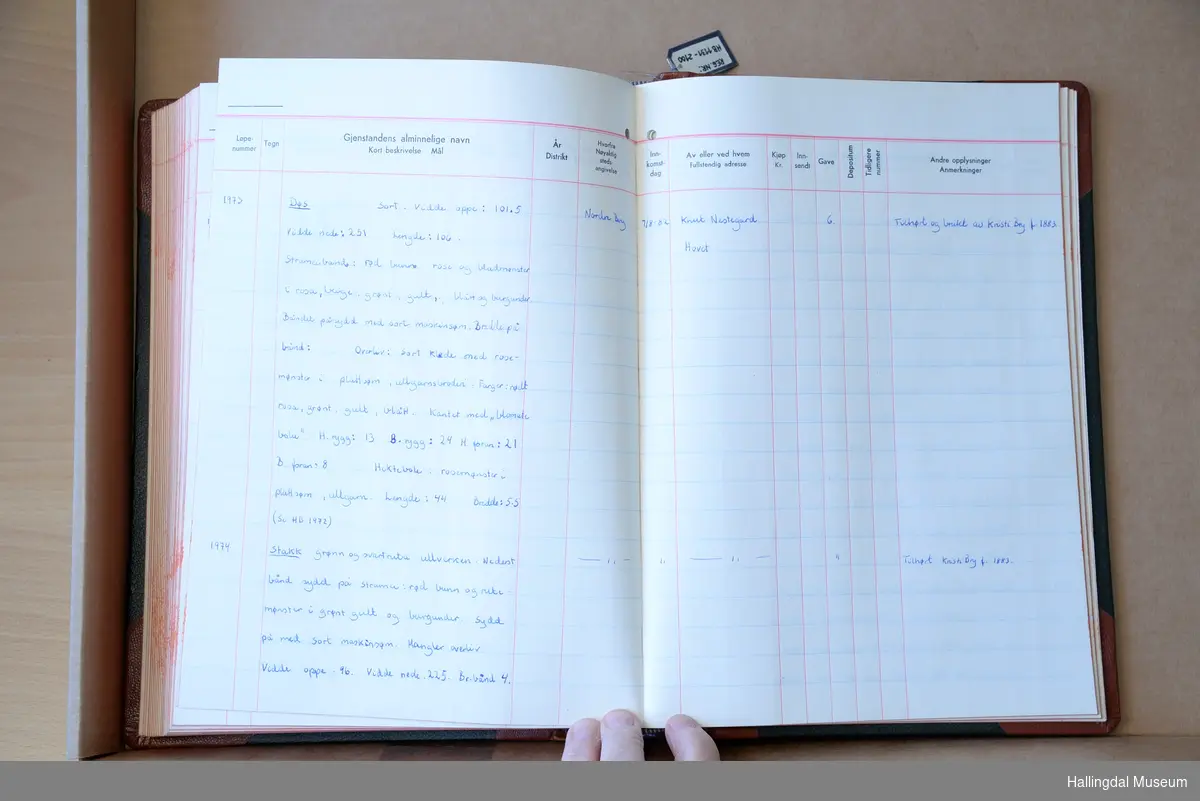 REG. NR.
HB 1131 - 2100
Løpe-
nummer
Tegn
Gjenstandens alminnelige navn
Kort beskrivelse Mål
År
Distrikt
Hvorfra
Nøyaktig
steds-
angivelse
Inn-
komst-
dag
Av eller ved hvem
Fullstendig adresse
Kjøp
Kr.
Inn-
sendt
Gave
Depositum
Tidligere
nummer
Andre opplysninger
Anmerkninger
1973 Døs sort. Vidde oppe: 101.5 Nordre Bry 7/8-82 Knut Nestegard G. Tilhørt og brukt av Kristi Bry f. 1883.
Vidde nede: 251 Lengde: 106. Hovet
Stramei bånd: rød bunn rose og bladmønster
i rosa, beige, grønt, gult, blått og burgunder.
Båndet påsydd med sort maskinsøm. Bredde på
bånd: Overliv: sort klede med rose-
mønster i plattsøm, ullgarnsbroderi. Farger: rødt
rosa, grønt, gult, blått. Kantet med "blomale
bola" H. rygg: 13 B. rygg: 24 H. foran: 21
B. foran: 8 Hektebole. rosemønster i
plattsøm, ullgarn. Lengde: 44 Bredde: 5.5
(Se HB 1972)
1974 Stakk grønn og svartrutet ullverken. Nederst — ,, — ,, — ,, — " Tilhørt Kristi Bry f. 1883.
bånd sydd på stramei: rød bunn og rute-
mønster i grønt gult og burgunder sydd
på med sort maskinsøm. Mangler overliv.
Vidde oppe. 96. Vidde nede. 225. Br. bånd 4.
Hallingdal Museum